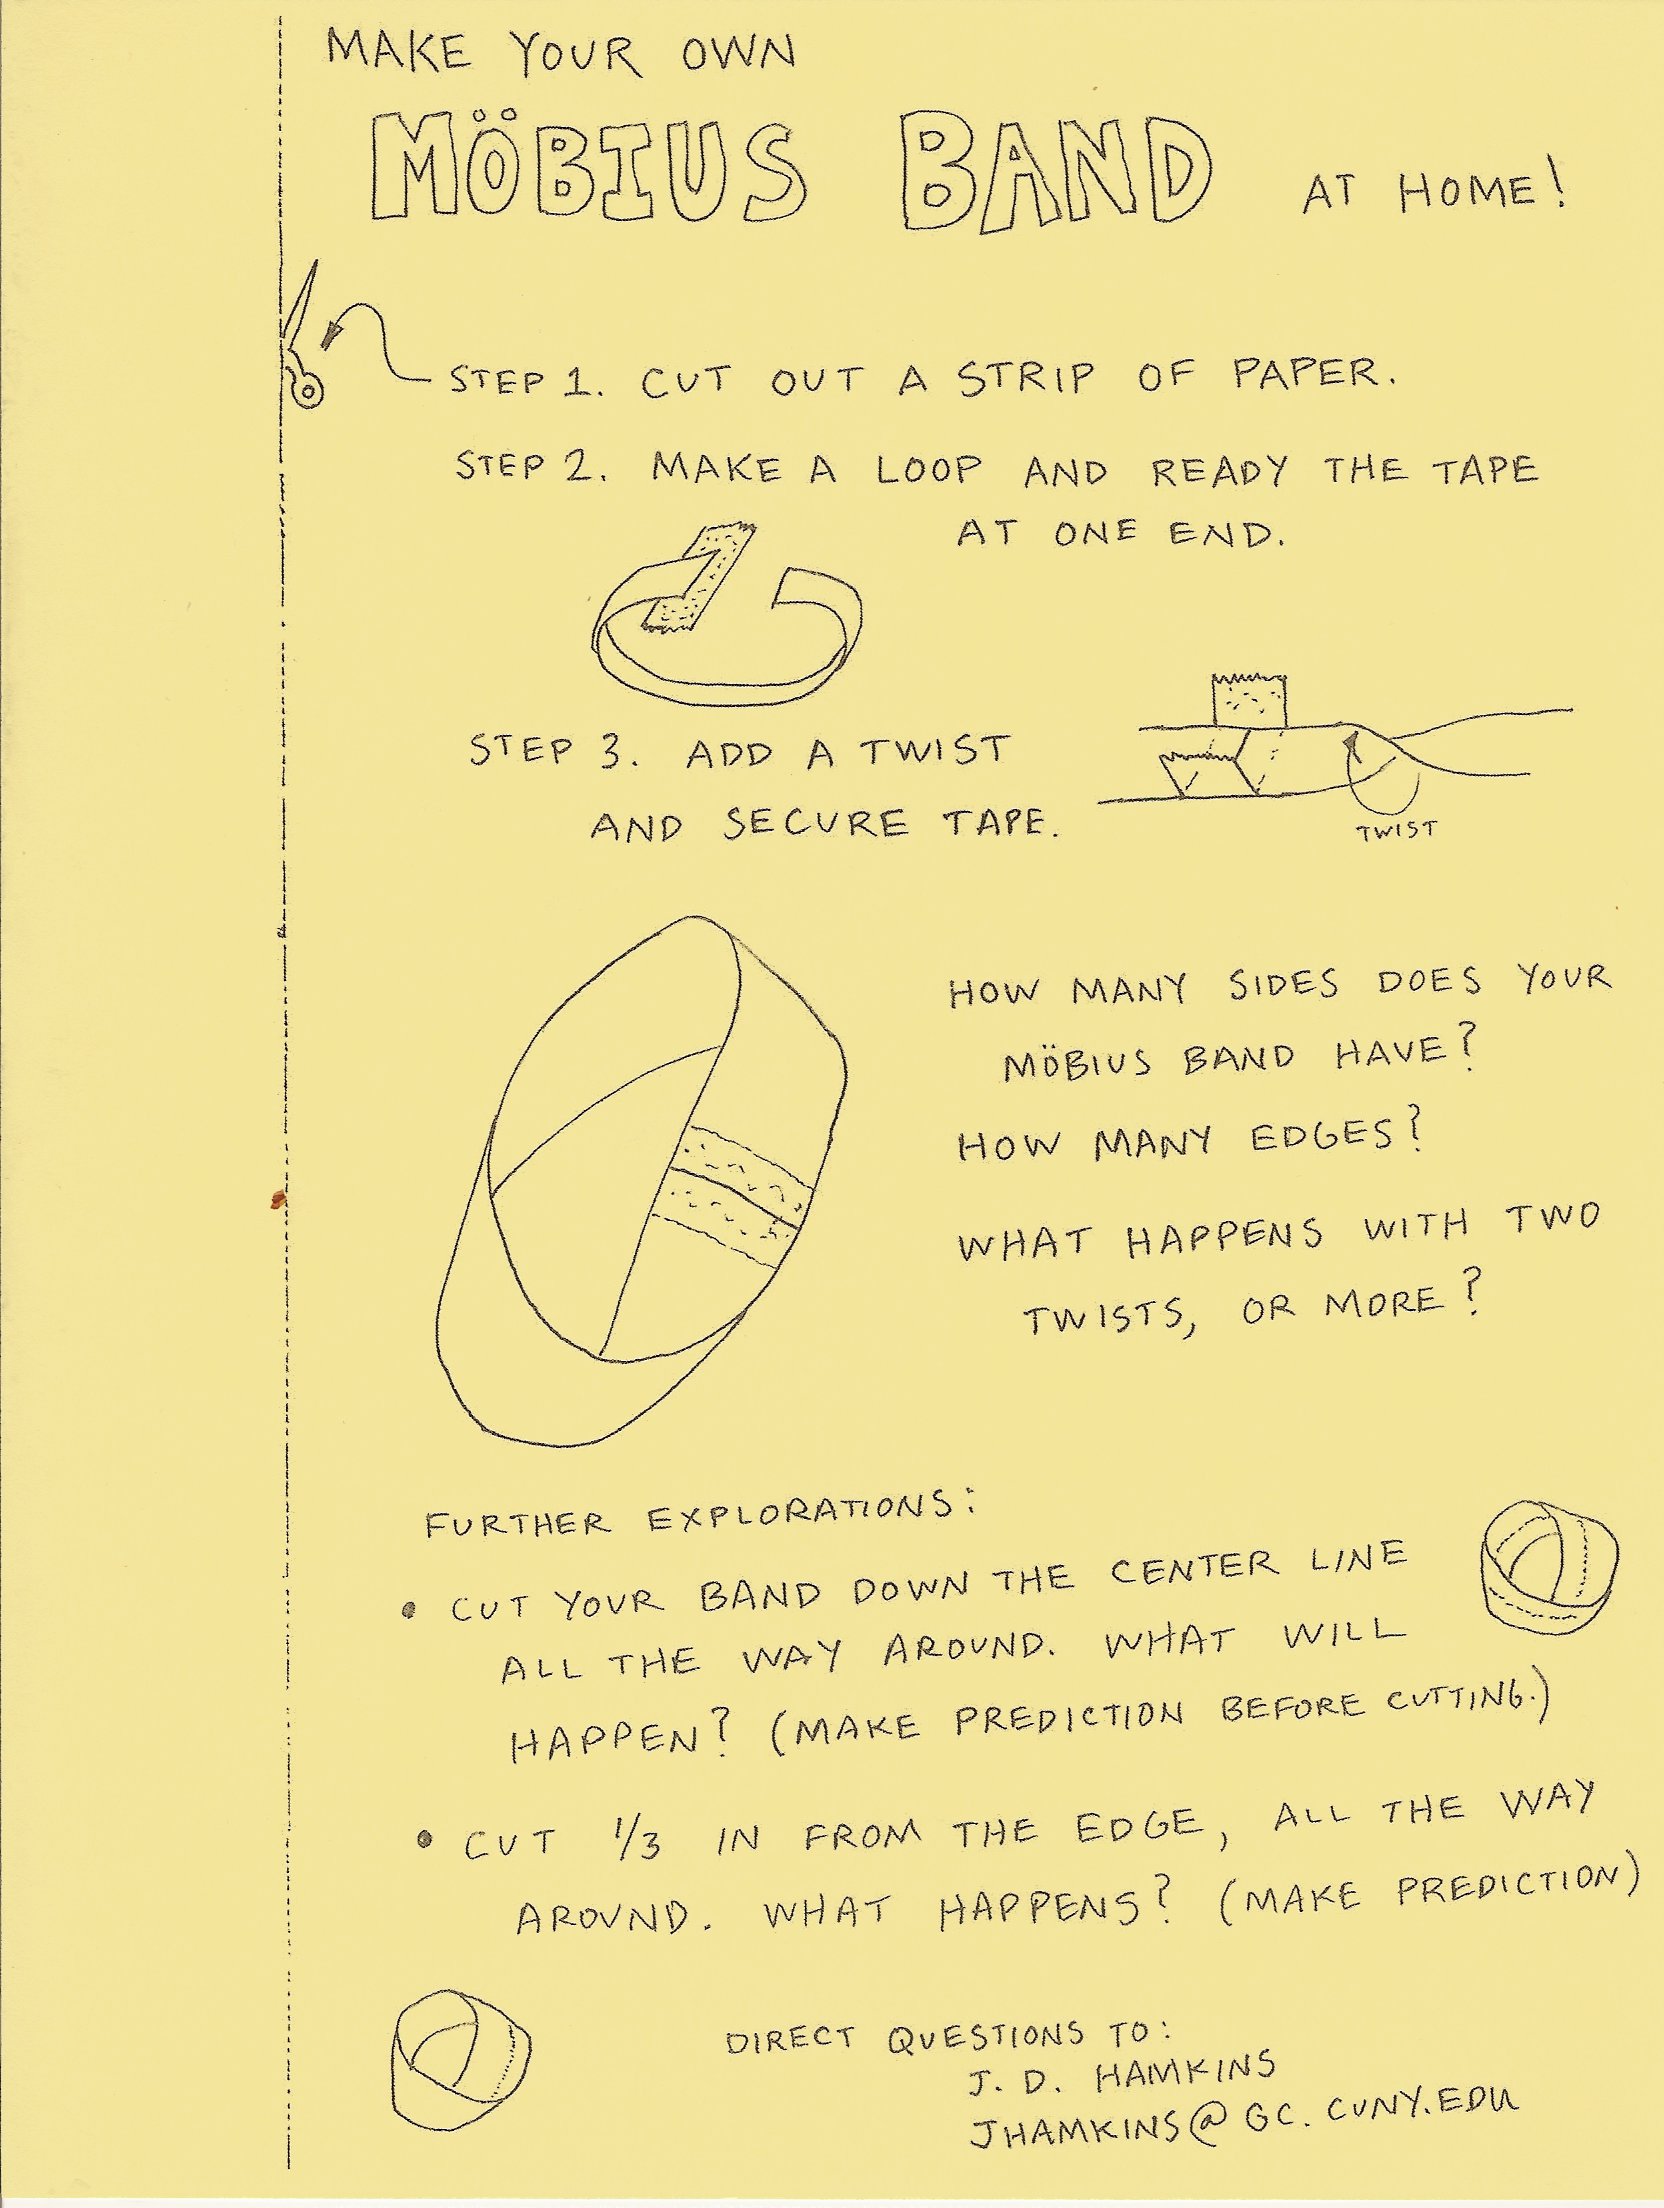 MAKE YOUR OWN
MÖBIUS BAND AT HOME!
STEP 1. CUT OUT A STRIP OF PAPER.
STEP 2. MAKE A LOOP AND READY THE TAPE
AT ONE END.
STEP 3. ADD A TWIST
AND SECURE TAPE.
TWIST
HOW MANY SIDES DOES YOUR
MÖBIUS BAND HAVE?
HOW MANY EDGES?
WHAT HAPPENS WITH TWO
TWISTS, OR MORE?
FURTHER EXPLORATIONS:
• CUT YOUR BAND DOWN THE CENTER LINE
ALL THE WAY AROUND. WHAT WILL
HAPPEN? (MAKE PREDICTION BEFORE CUTTING.)
• CUT 1/3 IN FROM THE EDGE, ALL THE WAY
AROUND. WHAT HAPPENS? (MAKE PREDICTION)
DIRECT QUESTIONS TO:
J. D. HAMKINS
JHAMKINS@GC.CUNY.EDU